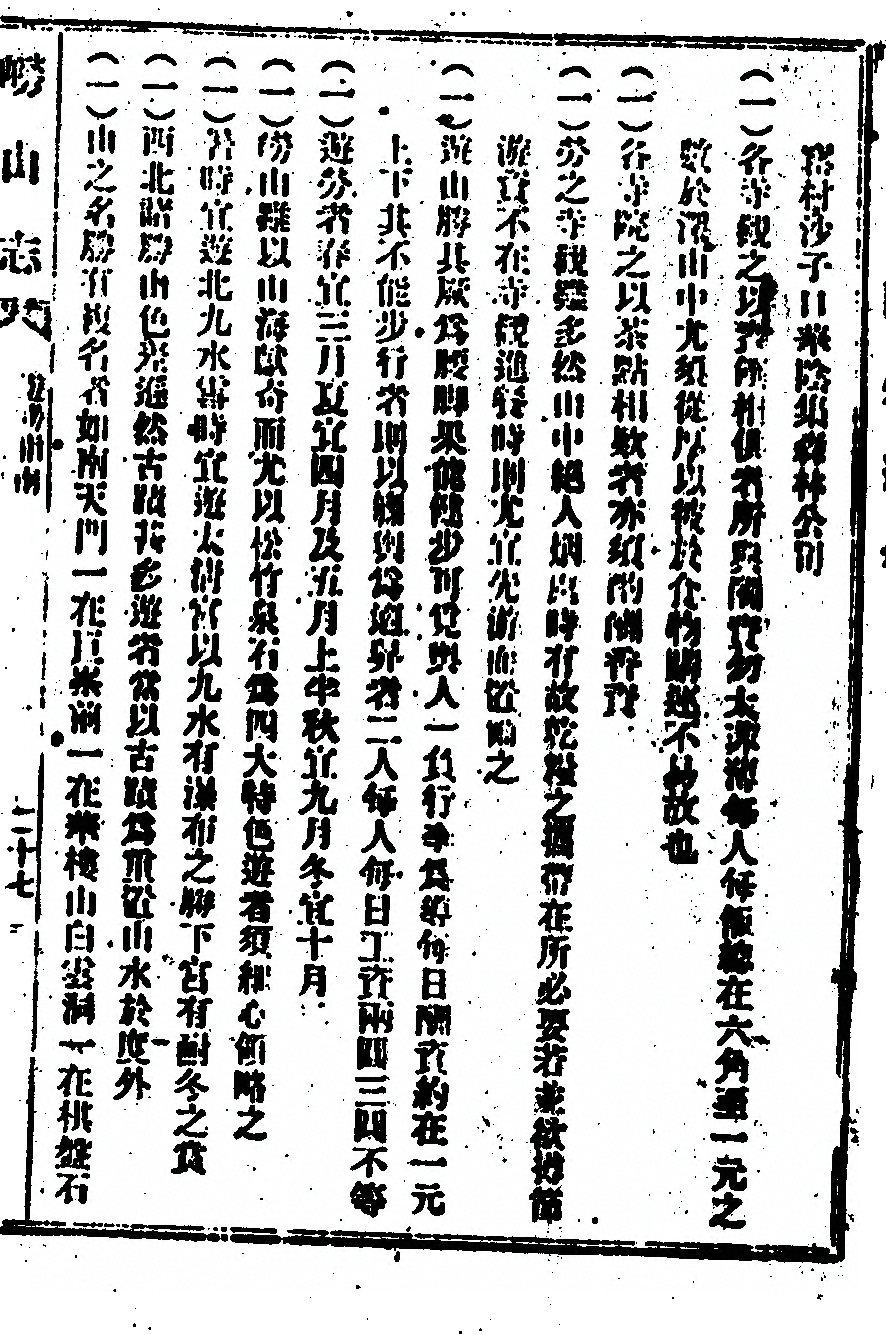 窩村沙子口華陰集森林公司
(一)各寺觀之以齋餉相供者所與開費勿太渾渾每人每頓總在六角至一元之
數於深山中尤須從厚以被於食物購運不易故也
(一)各寺院之以茶點相款者亦須酌酬香資
(一)勞之寺觀雖多然山中絕人烟處時有故乾糧之攜帶在所必要若並欲撙節
遊資不在寺觀進餐時則尤宜先游而設備之
(一)遊山勝具厥爲腰脚果能健步可覓與人一負行李爲導每日酬資約在一元
上下其不能步行者則以輿爲適昇者二人每人每日工資兩四三四不等
(一)遊勞者春宜三月夏宜四月及五月上半秋宜九月冬宜十月
(一)嶗山雖以山海獻奇而尤以松竹泉石爲四大特色遊者須細心領略之
(一)暑時宜遊北九水寒時宜遊太淸宮以九水有瀑布之勝下宮有耐冬之賞
(一)西北諸勝山色來遜然古蹟我多遊者當以古蹟爲重置山水於度外
(一)山之名勝有複名者如南天門一在巨峯前一在華樓山白雲洞一在棋盤石
嶗山志 遊嶗指南 二十七